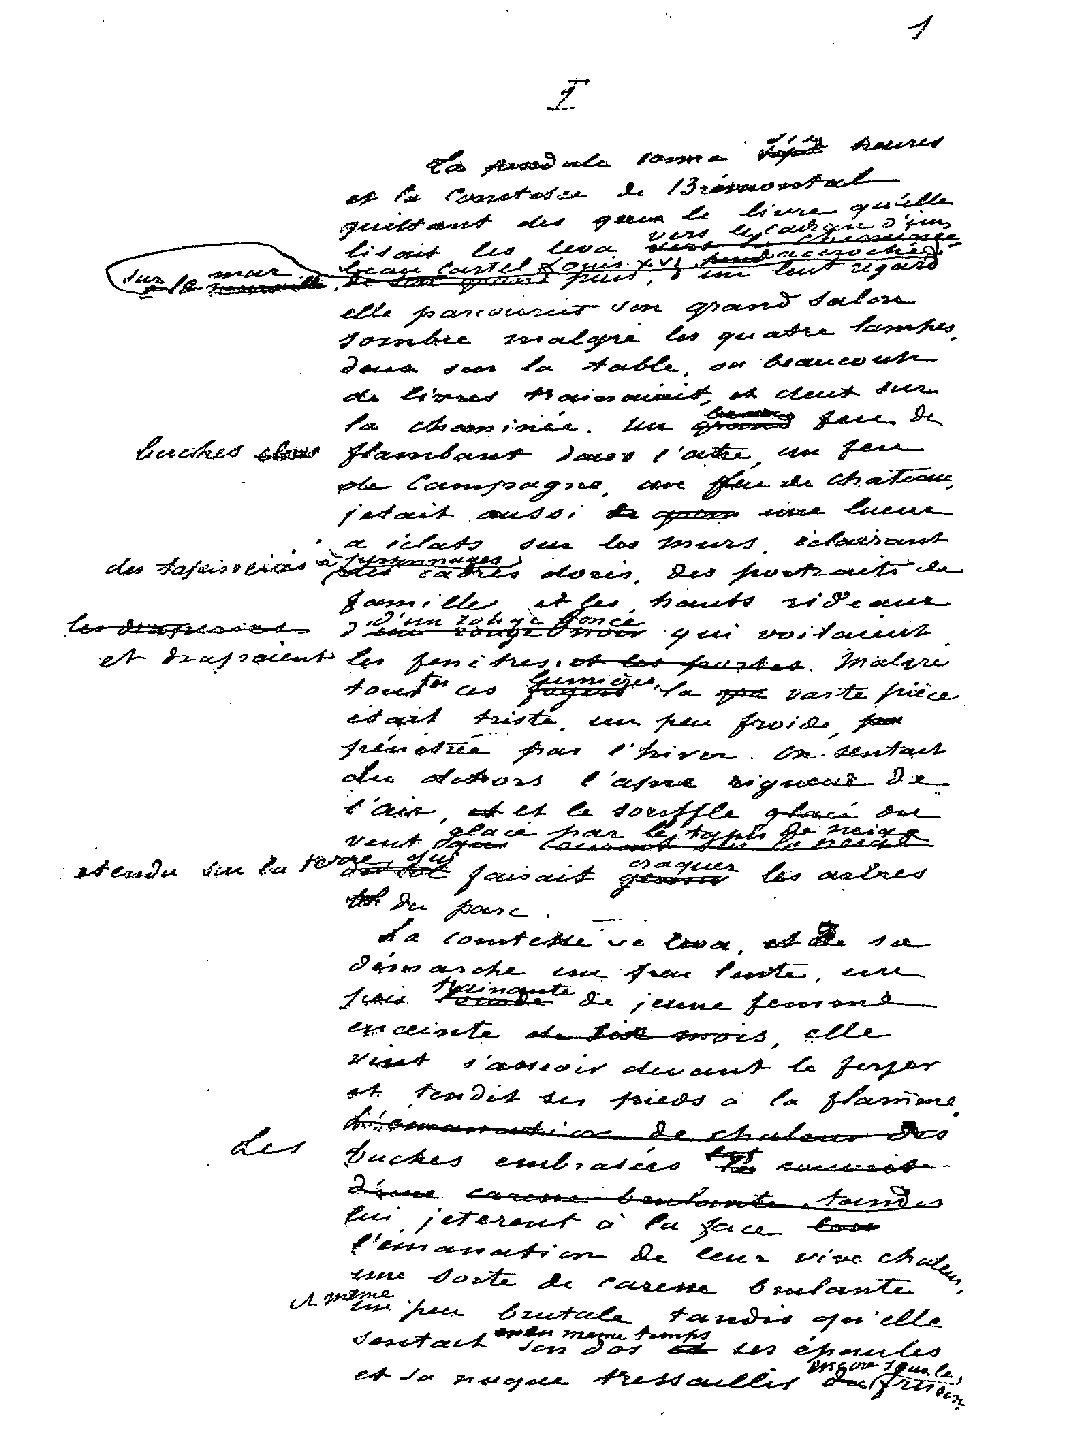 1
I
La pendule sonna six heures
et la Comtesse de Brémontal
quittant des yeux le livre qu'elle
lisait les leva vers le cadran d'un
beau Cartel Louis XVI accroché
sur le mur
un lent regard
elle parcourut son grand salon
sombre malgré les quatre lampes,
deux sur la table, où beaucoup
de livres trainaient, et deux sur
la cheminée. Un feu de
buches flambant dans l'atre, un feu
de Campagne, un feu de chateau,
jetait aussi une lueur
a éclats sur les murs, éclairant
des tapisseries à personnages,
des cadres dorés, des portraits de
famille, et les hauts rideaux
d'un rouge foncé qui voilaient
et drapaient les fenêtres. Malgré
toutes ces lumières la vaste pièce
était triste, un peu froide,
pénétrée par l'hiver. On sentait
du dehors l'apre rigueur de
l'air, et le souffle du
vent glacé par le tapis de neige
etendu sur la terre, qui faisait craquer les arbres
du parc.
La comtesse se leva, et de sa
démarche un peu lente, un
pas trainante de jeune femme
enceinte, elle
vint s'asseoir devant le foyer
et tendit ses pieds à la flamme.
Les buches embrasées
lui jeterent à la face
l'émanation de leur vive chaleur,
une sorte de caresse brulante
et même un peu brutale tandis qu'elle
sentait en même temps son dos ses épaules
et sa nuque tressaillir encore sous le frisson